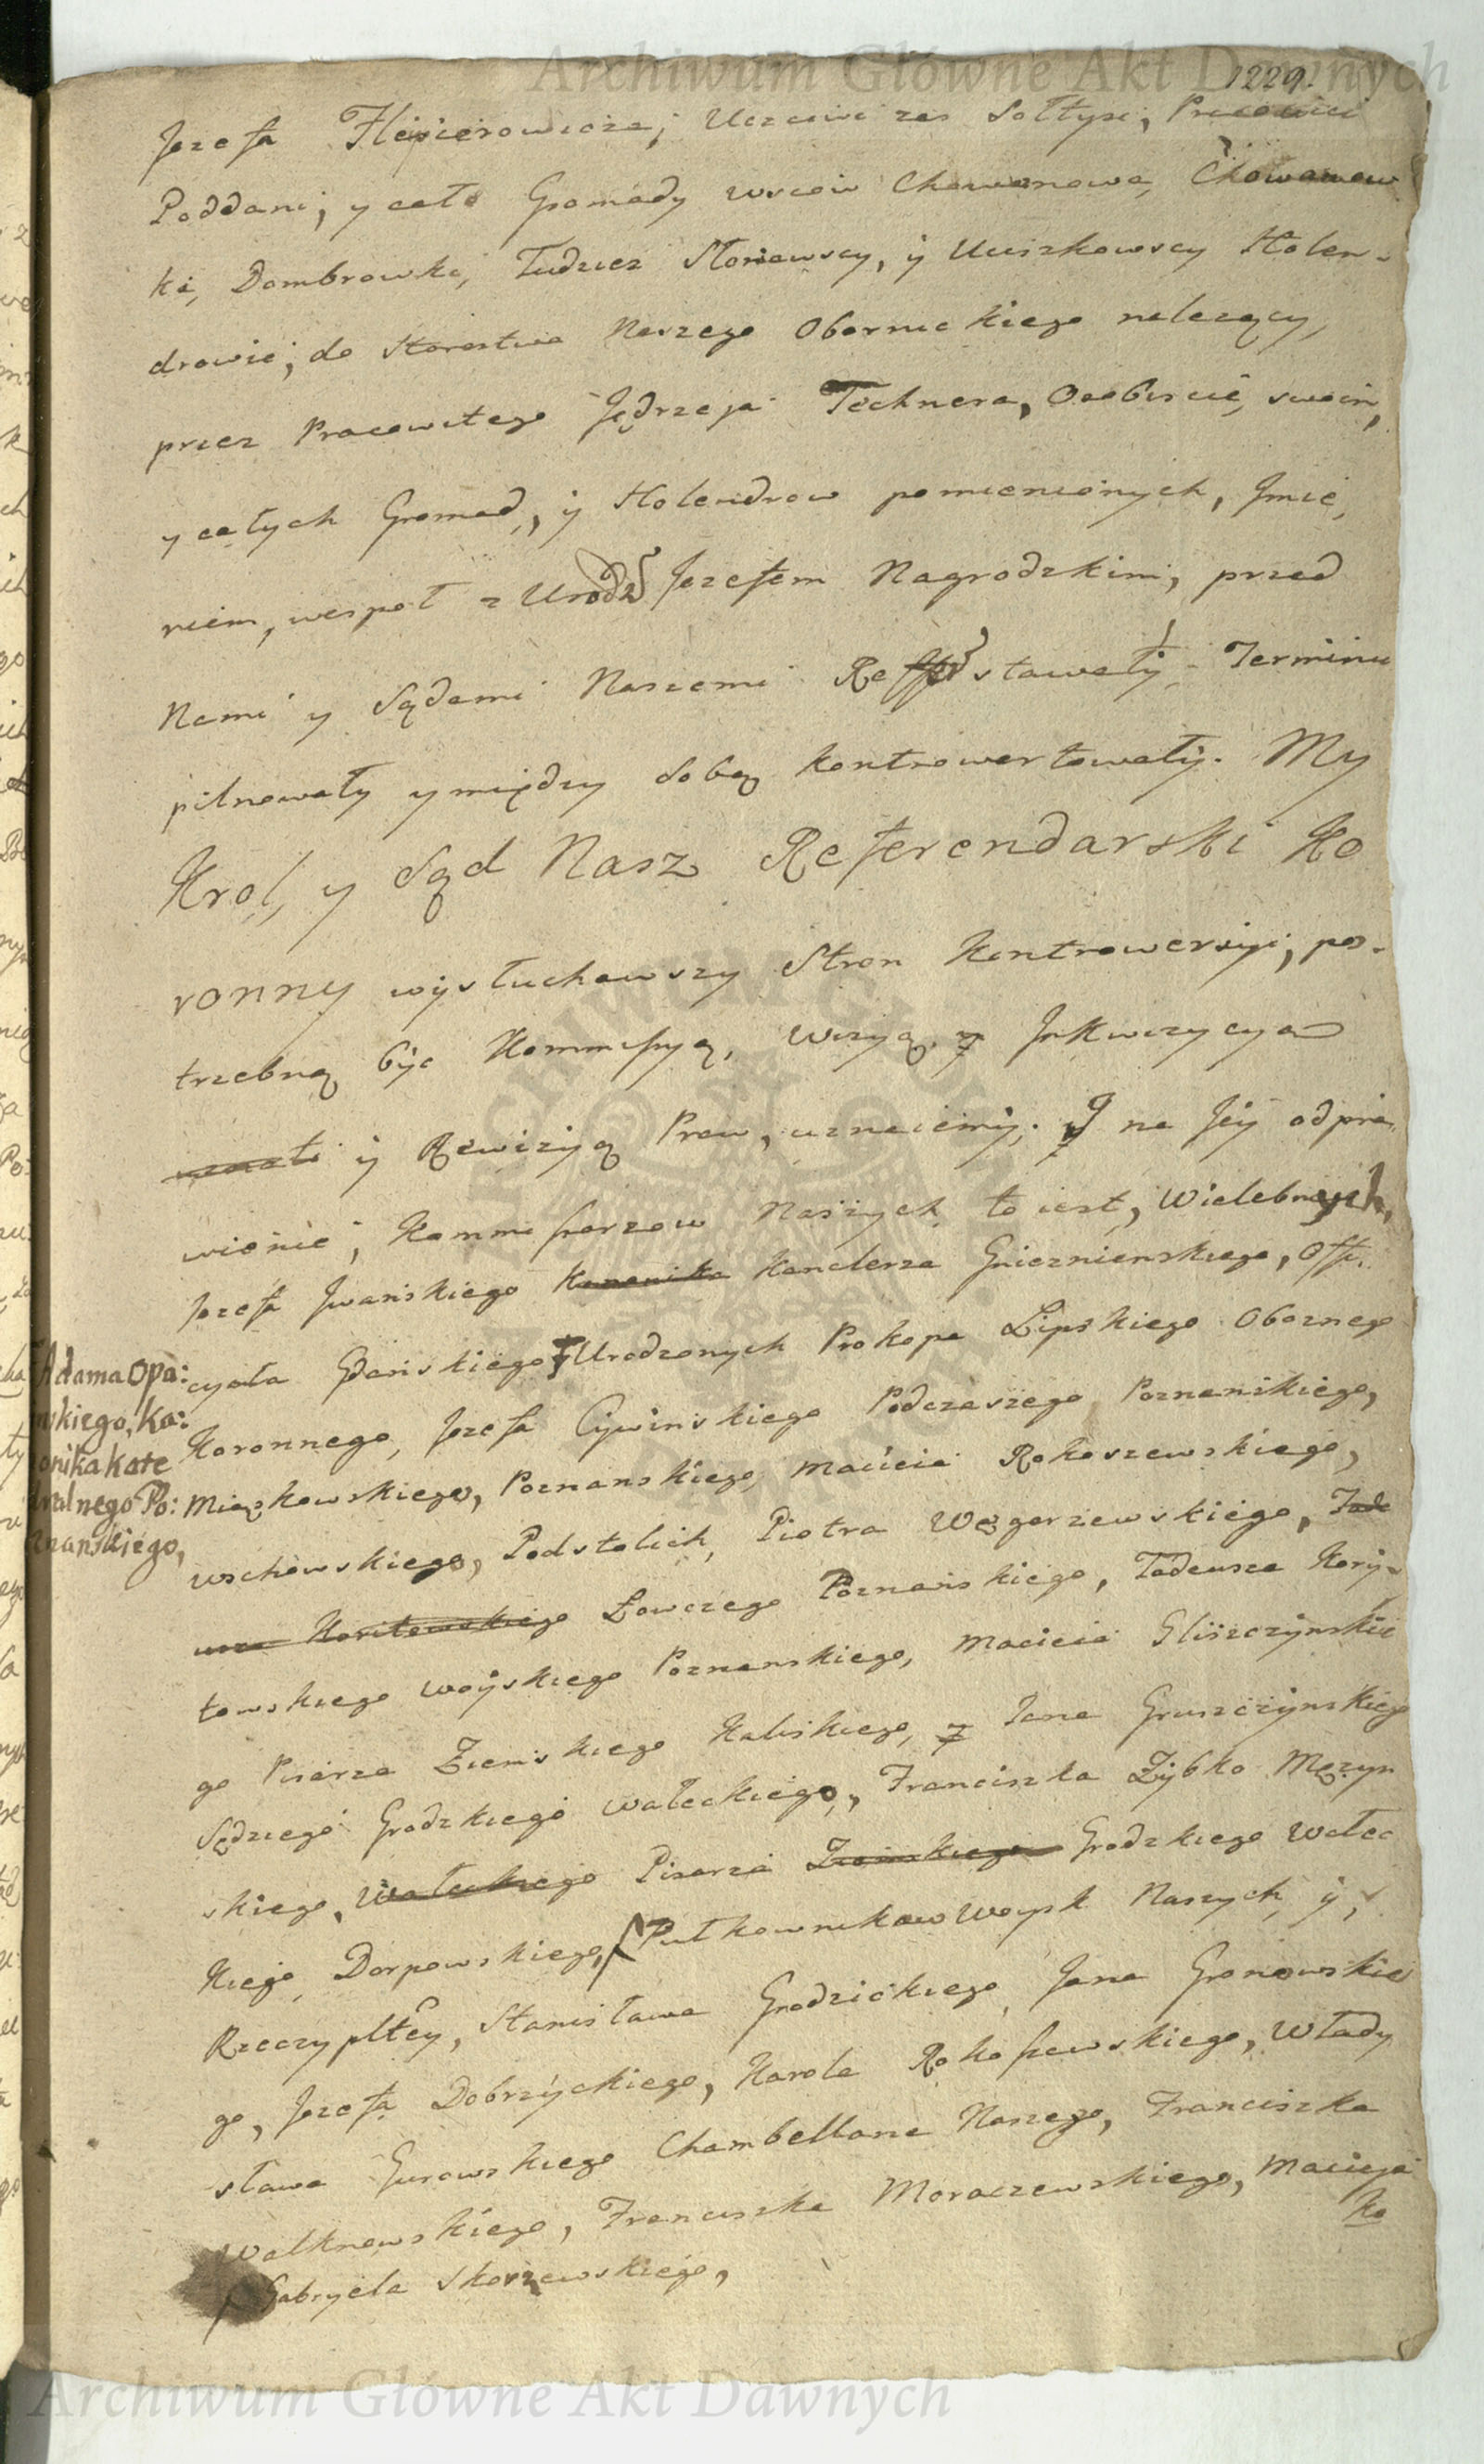 Archiwum Główne Akt Dawnych
1229.
Jozefa Uczciwi zas Sołtysi, Pracowici
Poddani, y całe Gromady wsiow Chowanowa, Chowanow
ki, Dombrowki, Tudziez Słoniawscy, ÿ Uciszkowscy Holen-
drowie, do Starostwa Naszego Obornickiego nalezący,
przez Pracowitego Jędrzeja Technera, Osobiscie, swoim,
y całych Gromad, ÿ Holendrow pomienionych, Jmie,
niem, wespoł z Urodz Jozefem Nagrodzkim, przed
Nami y Sądami Naszemi Reffer stawałÿ Terminu
pilnowały y między sobą kontrowertowałÿ. My
Krol, y Sąd Nasz Referendarski Ko
ronny wÿsłuchawszy Stron Kontrowersÿi, po-
trzebną bÿc Kommissyą, Wizyą, y Jnkwizycyą
uznali ÿ Rewizÿą Praw, uznaliśmÿ. J na Jeÿ odpra
wienie, Kommissarzow Naszÿch to iest, Wielebnych,
Jozefa Jwanskiego Kanonika Kanclerza Gnieznienskiego, Offi,
cyała Gdanskiego, Urodzonych Prokopa Lipskiego Oboznego
Adama Opa:
wskiego, Ka:
onika kate
dralnego Po:
znanskiego,
Koronnego, Jozefa Cÿwinskiego Podczaszego Poznanskiego,
Miąskowskiego, Poznanskiego, Macieia Rokoszewskiego,
wschowskiego, Podstolich, Piotra Węgorzewskiego, Tade
usza Koritowskiego Łowczego Poznanskiego, Tadeusza Korÿ-
towskiego Woÿskiego Poznanskiego, Macieia Gliszczÿnskie
go Pisarza Ziemskiego Kaliskiego, y Jana Gruszczÿnskiego
Sędziego Grodzkiego Wałeckiego, Franciszka Zÿbko Męzyn
skiego, Wałeckiego Pisarza Ziemskiego Grodzkiego Wałec
kiego, Dorpowskiego, Pułkownikow Woysk Naszych, ÿ,
Rzeczyplłey, Stanisława Grodzickiego Jana Gronowskie
go, Jozefa Dobrzÿckiego, Karola Rokossowskiego, Włady
sława Gurowskiego Chambellana Naszego, Franciszka
Walknowskiego, Franciszka Moraczewskiego, Macieja
ko
Gabryela Skorzewskiego,
Archiwum Główne Akt Dawnych